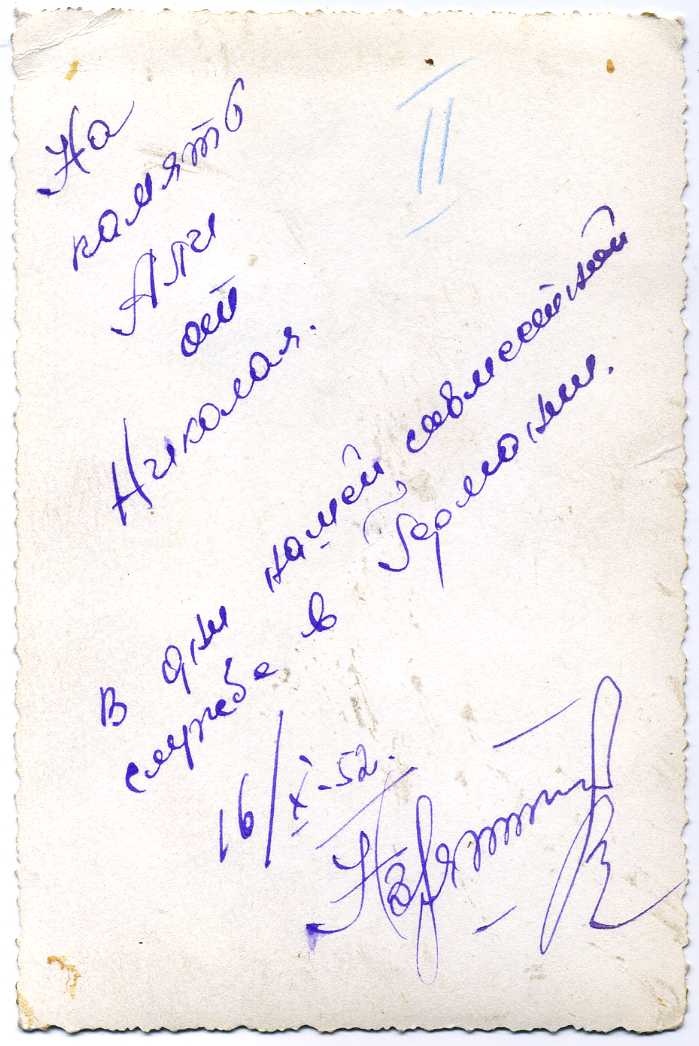 II
На
память
Али
от
Николая.
В дни нашей совместной
службе в Германии.
16/X-52.